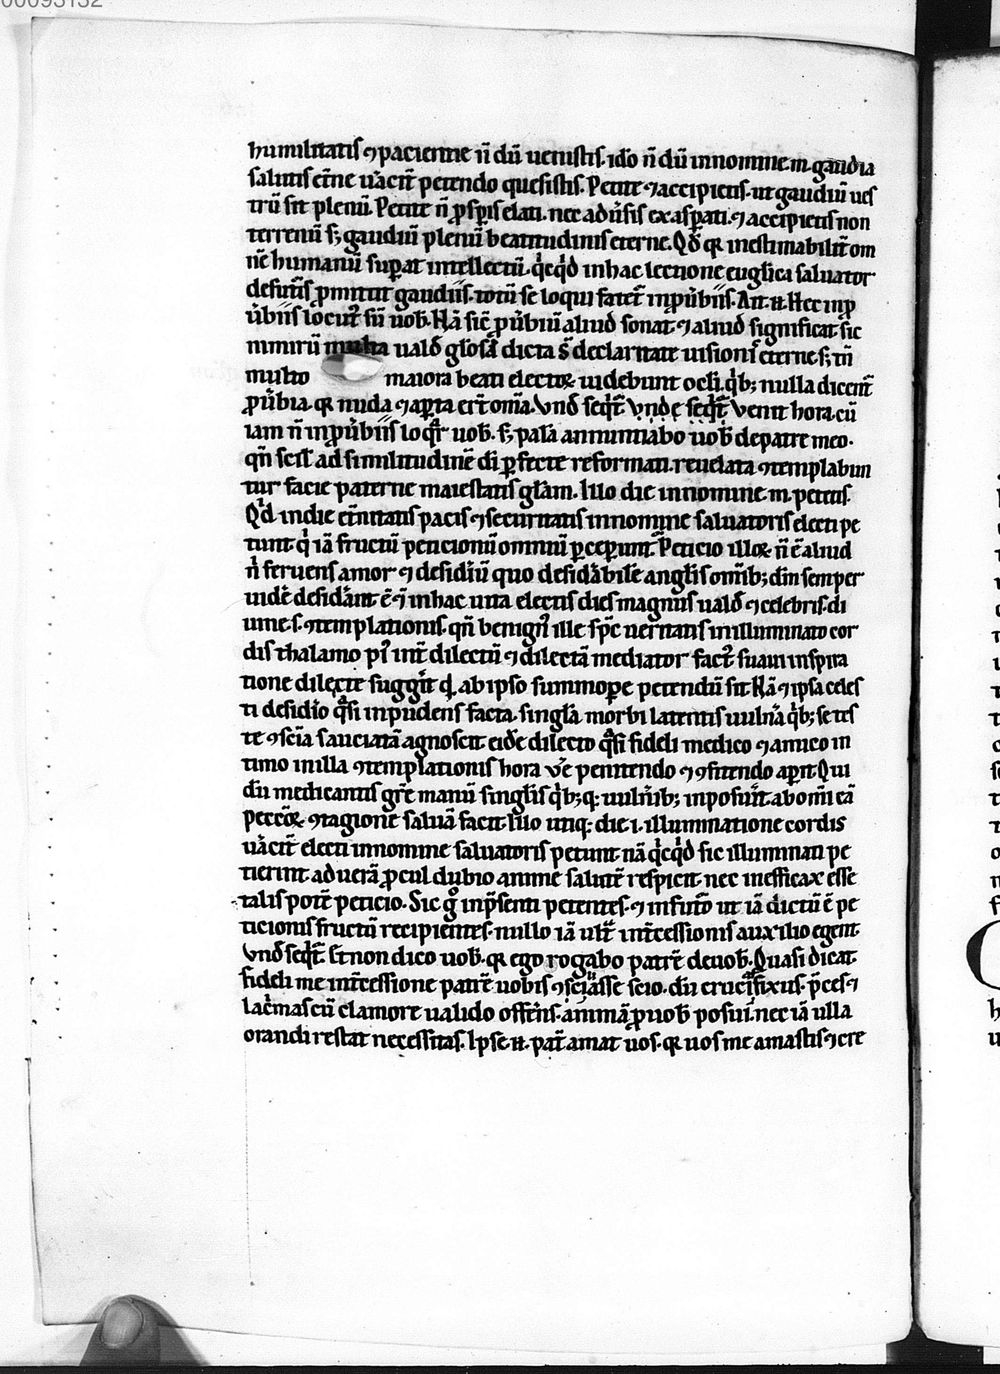 00093132
humilitatis ⁊ paciencie n̄ dū uenistis. idō n̄ dū in nomine .m. gaudia
salutis et̄ne uacit̄ petendo quesistis. Petite ⁊ accipietis. ut gaudiū ues
trū sit plenū. Petite n̄ ꝓspis elati. nec adūsis exasꝑati. ⁊ accipietis non
terrenū s; gaudiū plenū beatitudinis eterne. Qd̄ qꝛ inestimabilit̄ om
nē humanū suꝑat intellectū. qͥcqͥd in hac lectione euglͥca saluator
de futͥis ꝓmittit gaudiis. totū se loqui fatet̄ in ꝓubiis. Ait .n. Hec in ꝓ
ūbiis locutꝰ sū uob̄. Nā sic̄ ꝓubiū aliud sonat. ⁊ aliud significat. sic
nimirū multa uald̄ glōsa dicta s̄ de claritate uisionis eterne. s; tn̄
multo maiora beati electoꝝ uidebunt ocli. qͥb; nulla dicent̄
ꝓubia. qꝛ nuda ⁊ aꝑta ert̄ om̄ia. Vnd̄ seqͥt̄ vnde seqͥt̄ Venit hora. cū
iam n̄ in ꝓubiis loqͣr uob̄. s; palā annuntiabo uob̄ de patre meo.
qn̄ scil̄ ad similitudinē di ꝑfecte reformati. reuelata ꝯtemplabun
tur facie paterne maiestatis glām. Illo die in nomine .m. petetis.
Qd̄ in die et̄nitatis pacis ⁊ securitatis in nomine saluatoris electi pe
tunt. qͥ iā fructū peticionū omniū ꝑceperunt. Peticio illoꝝ n̄ ē aliud
nͥ feruens amor ⁊ desidiū quo desidabile anglis om̄ib; dm̄ semper
uidē desidant. ē ⁊ in hac uita electis dies magnus uald̄ ⁊ celebris. di
uine .s. ꝯtemplationis. qn̄ benignꝰ ille sp̄c ueritatis in illuminato cor
dis thalamo pꝰ int̄ dilectū ⁊ dilectā mediator factꝰ suaui inspira
tione dilecte suggit qͥd ab ipso summoꝑe petendū sit. Nā ⁊ ipsa celes
ti desidio qͣsi inpudens facta. singͥla morbi latentis uulna qͥb; se tes
te ꝯscia sauciatā agnoscit. eidē dilecto qͣsi fideli medico ⁊ amico in
timo in illa ꝯtemplationis hora vē penitendo ⁊ ꝯfitendo aꝑit. Qui
dū medicantis gr̄e manū singlis qͥb;q; uuln̄ib; inposuͥt. ab om̄i eā
peccōꝝ ꝯtagione saluā facit. Illo itaq; die .i. illuminatione cordis
uacit̄ electi in nomine saluatoris petunt. nā qͥcqͥd sic illuminati pe
tierint ad uerā ꝓcul dubio anime salutē respicit. nec inefficax esse
talis potē peticio. Sic gͦ in p̄senti petentes. ⁊ in futͦ ut iā dictū ē pe
ticionis fructū recipientes. nullo iā ult̄ int̄cessionis auxilio egent.
Vnd̄ seqͥt̄. Et non dico uob̄. qꝛ ego rogabo patrē de uob̄. Quasi dicat.
fideli me int̄cessione patrē uobis ꝯsciliasse scio. dū crucifixus. p̄ces ⁊
lacͥmas cū clamore ualido offerēs. animā ꝓ uob̄ posui. nec iā ulla
orandi restat necessitas. Ipse .n. pat̄ amat uos. qꝛ uos me amastis ⁊ cre